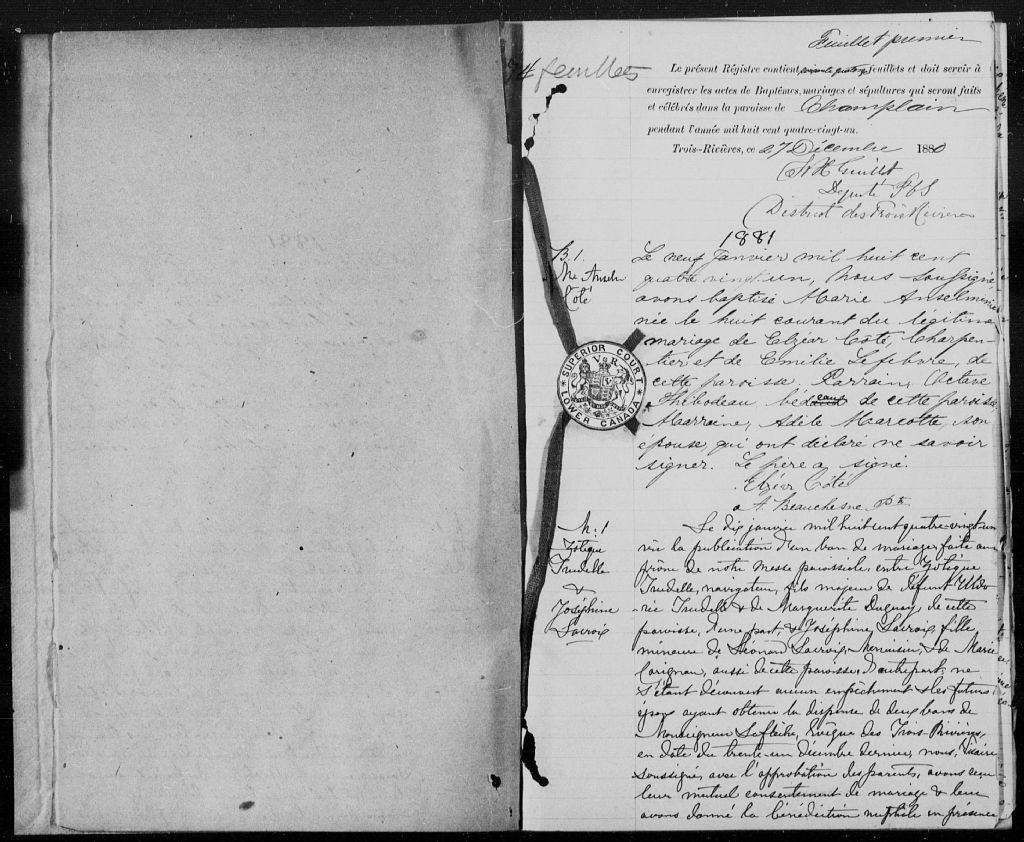 Feuillet premier
74 feuilles
Le présent Régistre contient soixante quatorze feuillets et doit servir à
enregistrer les actes de Baptêmes, mariages et sépultures qui seront faits
et célébrés dans la paroisse de Champlain
pendant l'année mil huit cent quatre-vingt-un.
Trois-Rivières, ce 27 Décembre 1880
Guillet
Député P C S
District des Trois Rivières
1881
B. 1.
Me Anselm
Côté
Le neuf Janvier mil huit cent
quatre vingt un, Nous Soussigné
avons baptisé Marie Anselmenie
née le huit courant du légitime
mariage de Elzéar Côté, Charpen-
tier et de Emilie Lefebvre, de
cette paroisse. Parrain, Octave
Thibodeau, de cette paroisse,
Marraine, Adèle Marcotte, son
épouse, qui ont déclaré ne savoir
signer. Le père a signé.
Elzéar Côté
A. Beauchesne Ptre
SUPERIOR COURT
V R
LOWER CANADA
M. 1
Zotique
Trudelle
&
Joséphine
Lacroix
Le dix janvier mil huit cent quatre-vingt-un
vu la publication d'un ban de mariage faite au
prône de notre messe paroissiale, entre Zotique
Trudelle, navigateur, fils majeur de défunt Uldo
ric Trudelle & de Marguerite Duguay, de cette
paroisse, d'une part, & Joséphine Lacroix, fille
mineure de Léonard Lacroix, Menuisier, & de Marie
Carignan, aussi de cette paroisse, d'autre part; ne
s'étant découvert aucun empêchement & les futurs
époux ayant obtenu la dispense de deux bans de
Monseigneur Laflèche, Evêque des Trois-Rivières,
en date du trente-un décembre dernier, nous, Vicaire
soussigné, avec l'approbation des parents, avons reçu
leur mutuel consentement de mariage & leur
avons donné la bénédiction nuptiale en présence